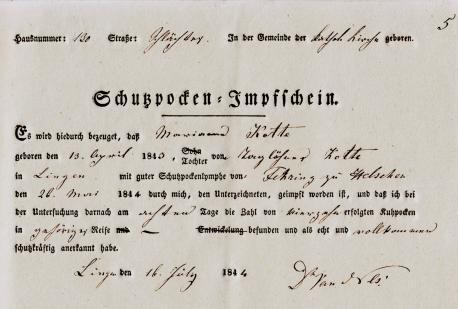 5
Hausnummer: 130 Straße: Schlächter. In der Gemeinde der kathol. Kirche geboren.
Schutzpocken-Impfschein.
Es wird hiedurch bezeuget, daß Marianne Kotte
geboren den 13. April 1843, Sohn Tochter von Taglöhner Kotte
in Lingen mit guter Schutzpockenlymphe von zu
den 26. Mai 1844 durch mich, den Unterzeichneten, geimpft worden ist, und daß ich bei
der Untersuchung darnach am achten Tage die Zahl von vierzehn erfolgten Kuhpocken
in gehöriger Reife und — Entwickelung befunden und als echt und vollkommen
schutzkräftig anerkannt habe.
Lingen den 16. July 1844